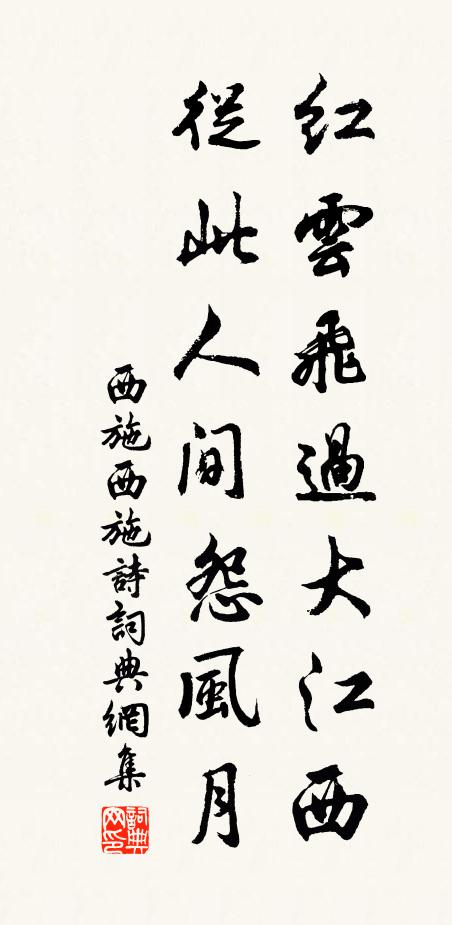 紅雲飛過大江西
從此人間怨風月
西施西施詩詞典網集
詞典網印